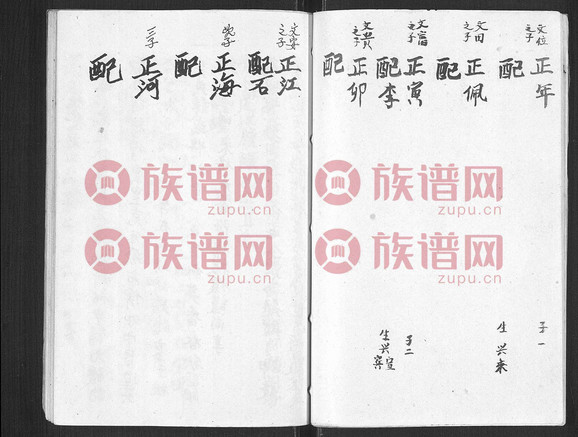 文位之子
正年
配
子一
生兴来
文田之子
正佩
配
文富之子
正寅
配李
子二
生兴宣
寀
正卯
配
文安之子
正江
配石
次子
正海
配
三子
正河
配
族谱网
zupu.cn
族谱网
zupu.cn
族谱网
zupu.cn
族谱网
zupu.cn